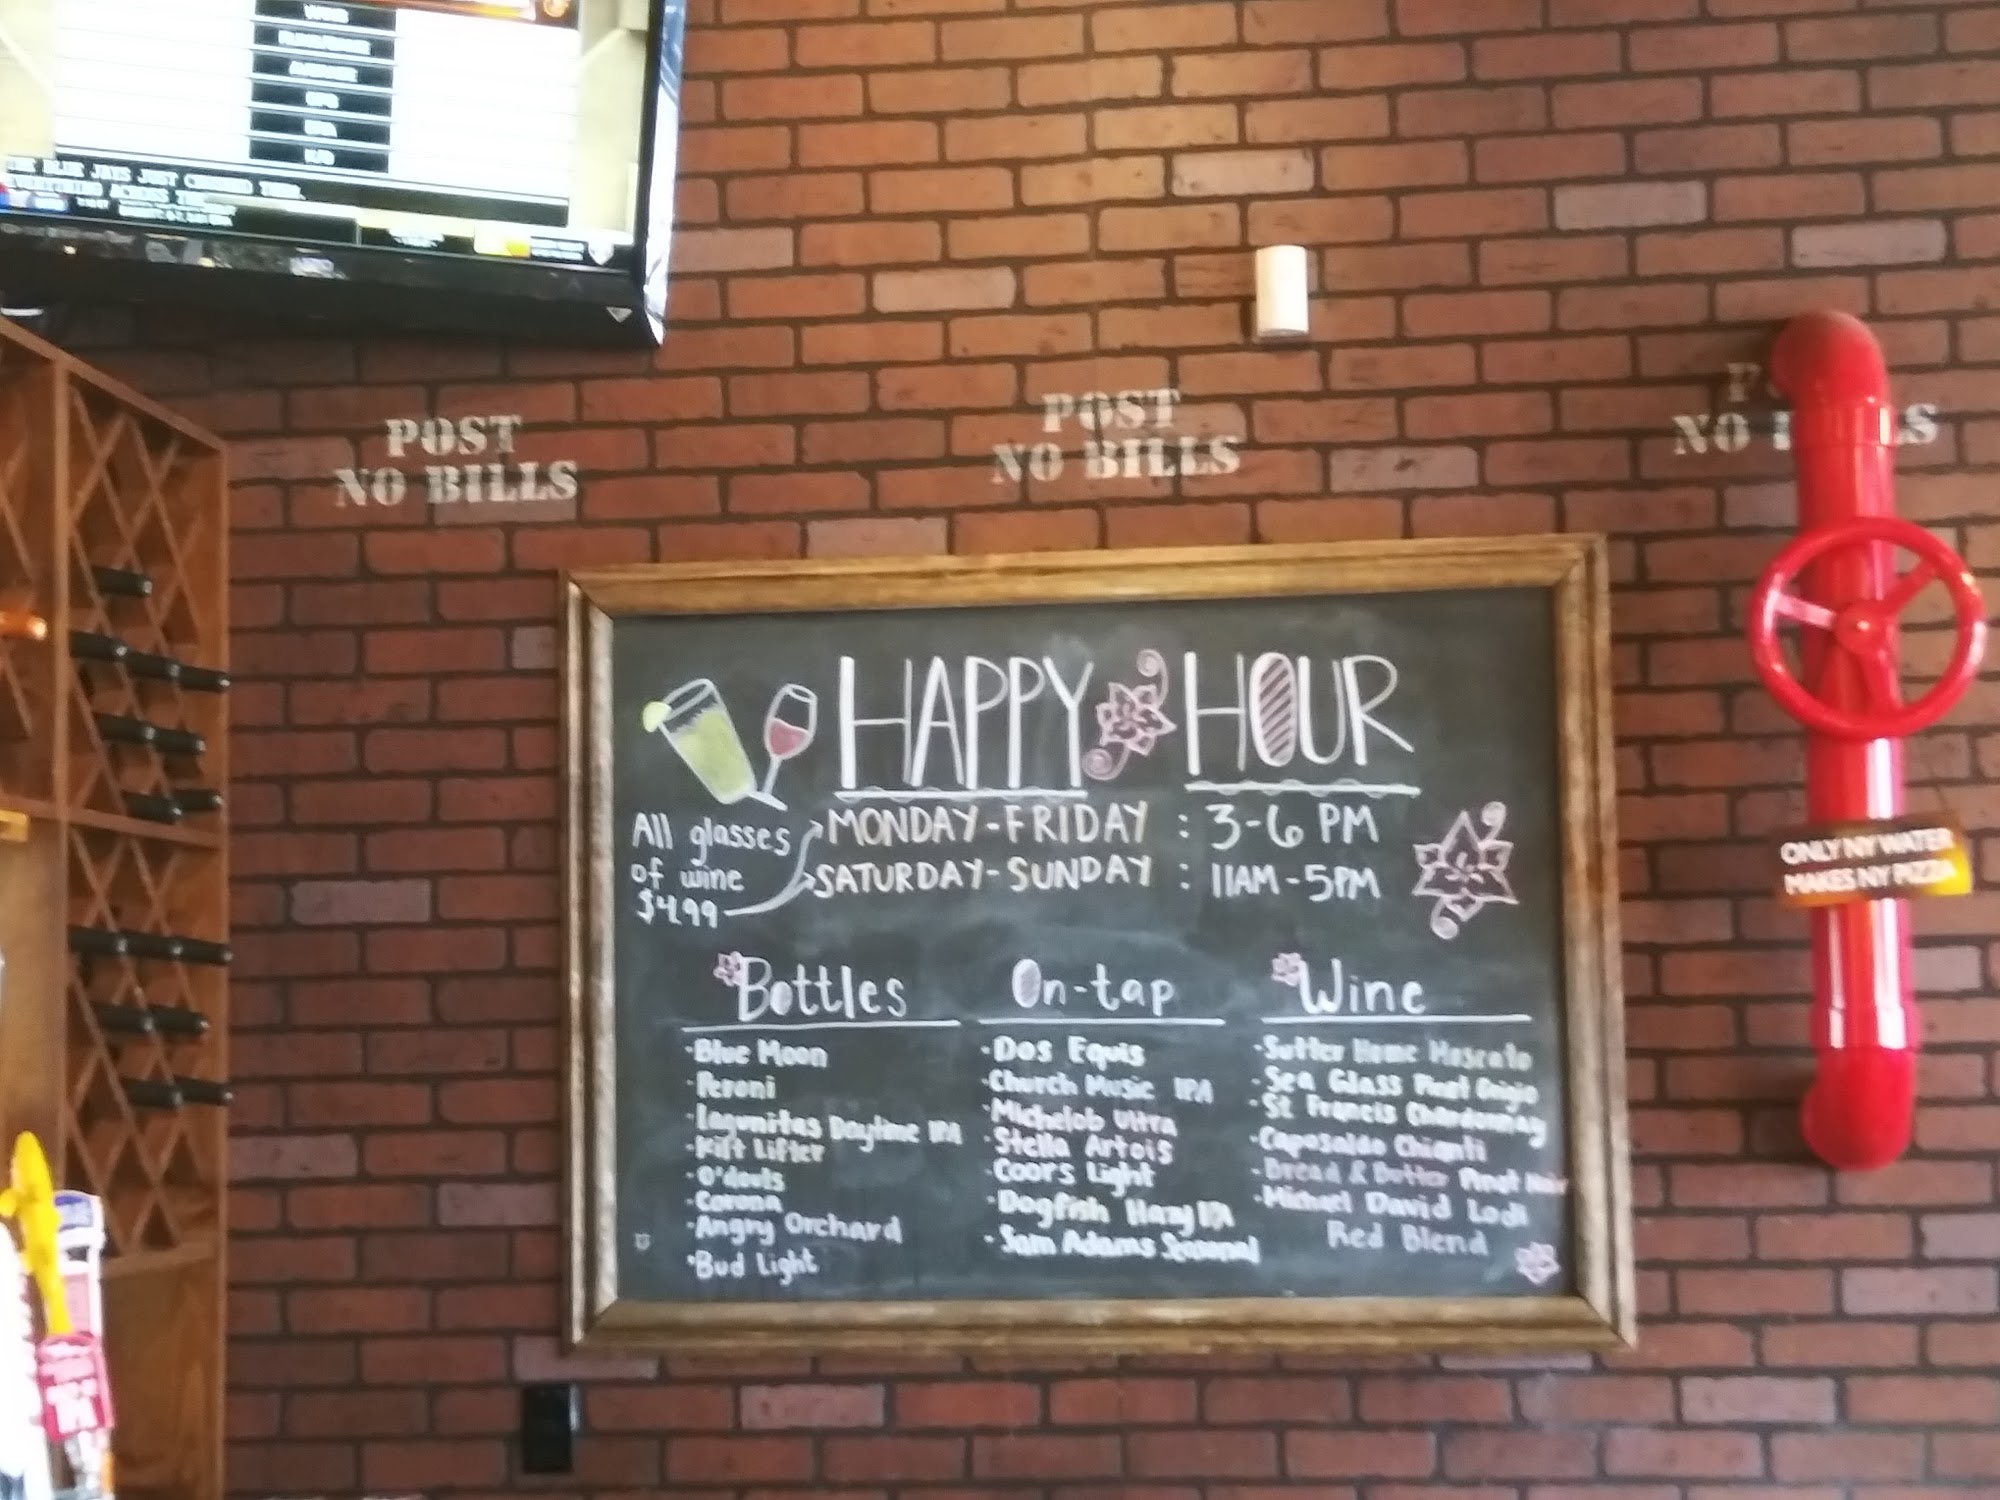 POST
NO BILLS
POST
NO BILLS
NO
HAPPY HOUR
All glasses
of wine
$4.99
MONDAY-FRIDAY : 3-6 PM
SATURDAY-SUNDAY : 11AM-5PM
Bottles
•Blue Moon
•Peroni
•Lagunitas Daytime IPA
•Kilt Lifter
•O'douls
•Corona
•Angry Orchard
•Bud Light
On-tap
•Dos Equis
•Church Music IPA
•Michelob Ultra
•Stella Artois
•Coors Light
•Dogfish Hazy IPA
•Sam Adams Seasonal
Wine
•Sutter Home Moscato
•Sea Glass Pinot Grigio
•St Francis Chardonnay
•Caposaldo Chianti
•Bread & Butter Pinot Noir
•Michael David Lodi
Red Blend
ONLY NY WATER
MAKES NY PIZZA